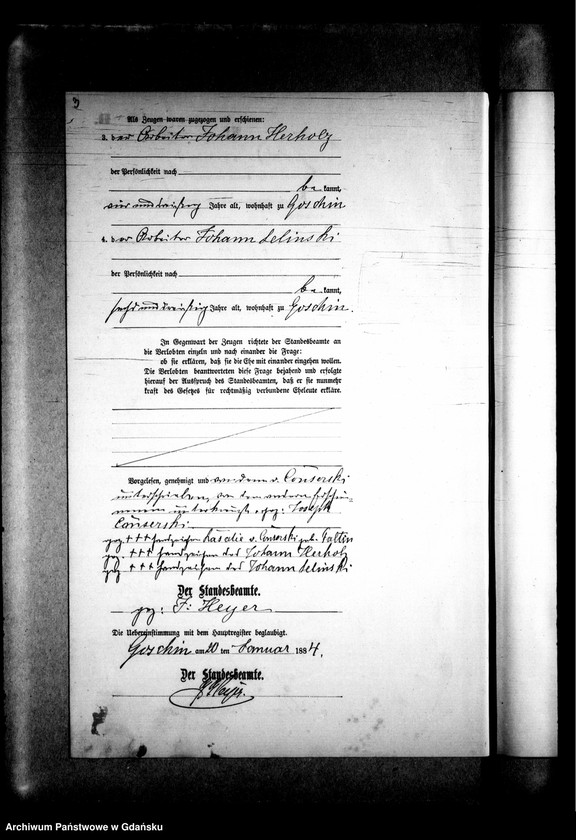 Als Zeugen waren zugezogen und erschienen:
3. der Arbeiter Johann Herholz
der Persönlichkeit nach
be kannt,
vier und dreißig Jahre alt, wohnhaft zu Goschin
4. der Arbeiter Johann Selinski
der Persönlichkeit nach
be kannt,
sechs und dreißig Jahre alt, wohnhaft zu Goschin.
In Gegenwart der Zeugen richtete der Standesbeamte an
die Verlobten einzeln und nach einander die Frage:
ob sie erklären, daß sie die Ehe mit einander eingehen wollen.
Die Verlobten beantworteten diese Frage bejahend und erfolgte
hierauf der Ausspruch des Standesbeamten, daß er sie nunmehr
kraft des Gesetzes für rechtmäßig verbundene Eheleute erkläre.
Vorgelesen, genehmigt und von dem v. Czuserski
unterschrieben, von den andern Erschie-
nenen unterkreuzt, gez: Joseph
gez +++ Handzeichen v. geb.
gez. +++ Handzeichen des Johann Herholz
gez +++ Handzeichen des Johann Selinski
Der Standesbeamte.
gez: F. Heyer
Die Uebereinstimmung mit dem Hauptregister beglaubigt.
Goschin am 20 ten Januar 1884.
Der Standesbeamte.
Heyer.
Archiwum Państwowe w Gdańsku